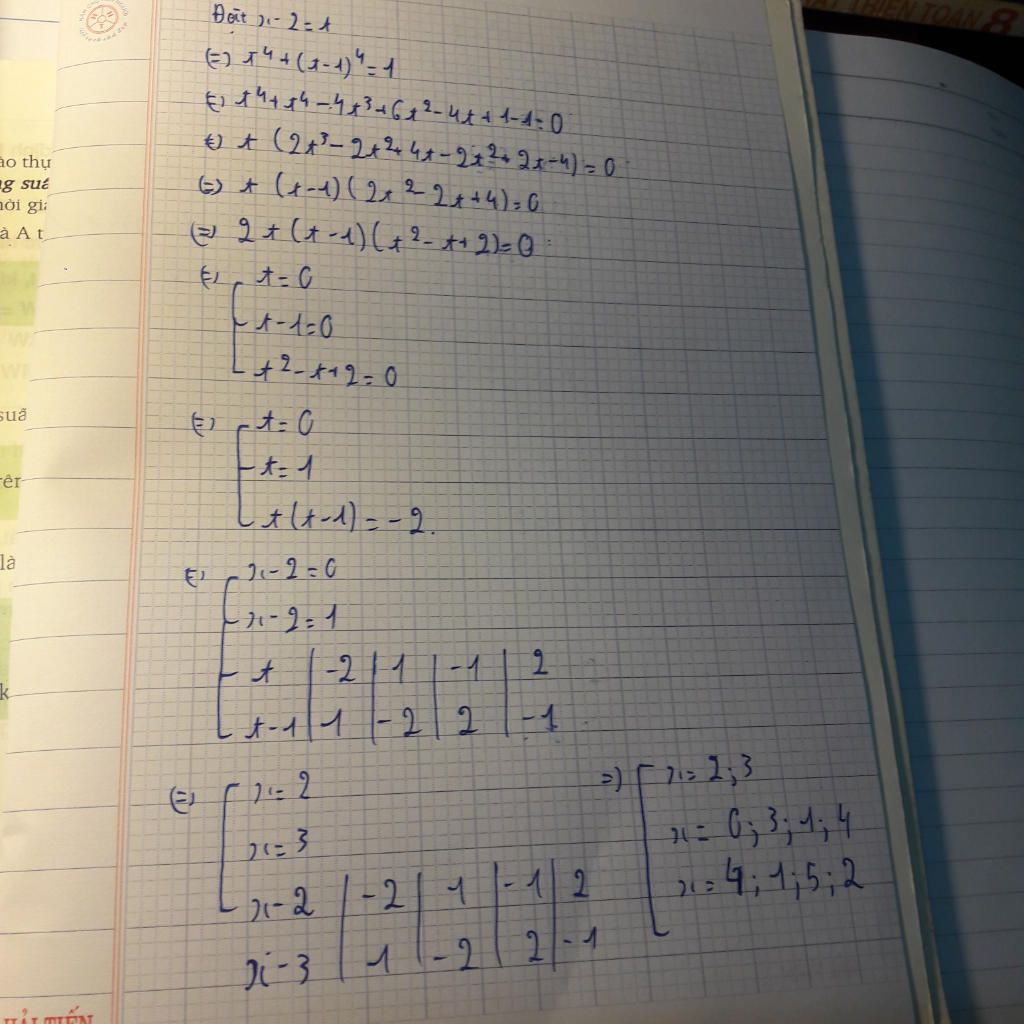 ÁT TRIỂN TOÁN 8
Đặt x-2=t
(=) t⁴+(t-1)⁴=1
(=) t⁴+t⁴-4t³+6t²-4t+1-1=0
(=) t (2t³-2t²+4t-2t²+2t-4)=0
(=) t (t-1)(2t²-2t+4)=0
(=) 2t(t-1)(t²-t+2)=0
(=) [ t=0
t-1=0
t²-t+2=0
(=) [ t=0
t=1
t(t-1)=-2.
(=) [ x-2=0
x-2=1
t | -2 | 1 | -1 | 2
t-1 | 1 | -2 | 2 | -1
(=) [ x=2
x=3
x-2 | -2 | 1 | -1 | 2
x-3 | 1 | -2 | 2 | -1
=) [ x=2;3
x=0;3;1;4
x=4;1;5;2
ào thụ
g suấ
ời gi
à A t
suấ
là
k
HẢI TIẾN